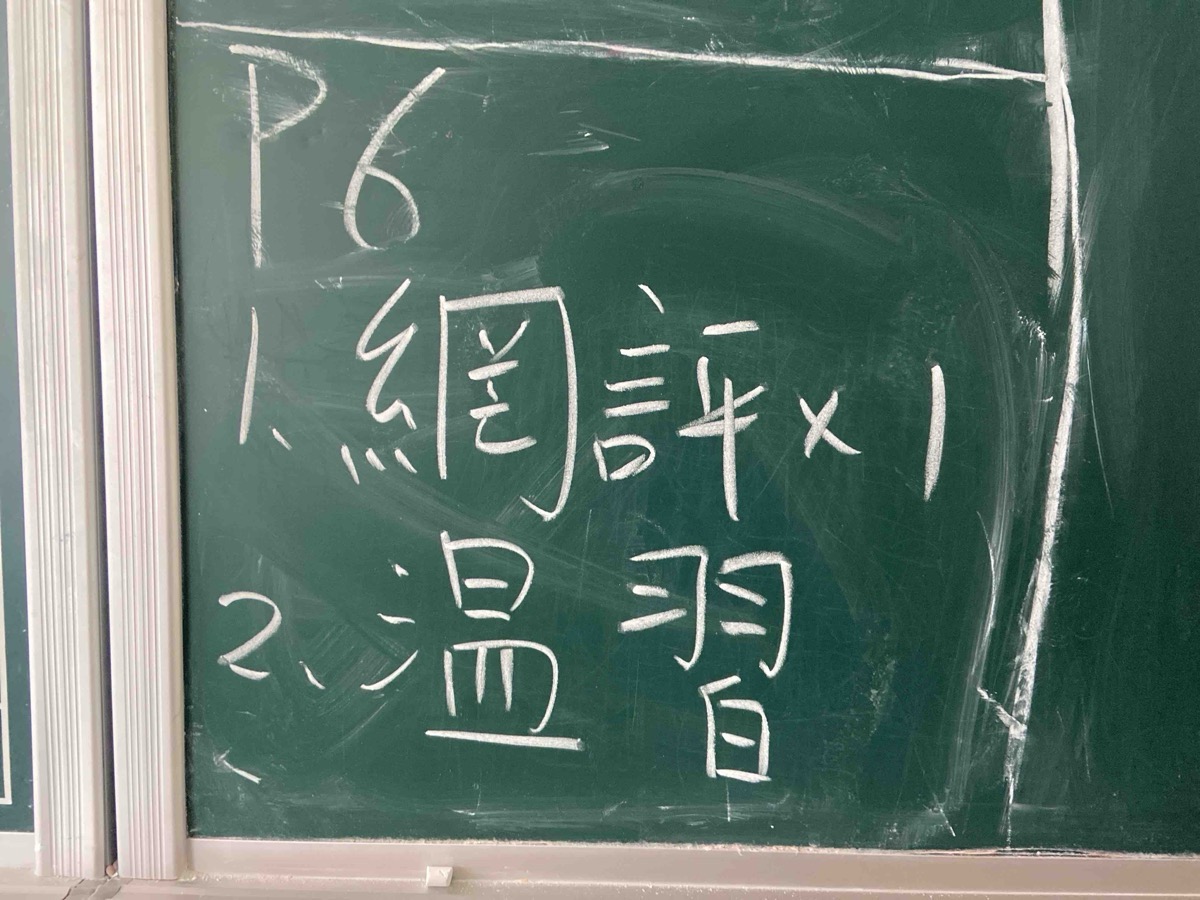 P6
1. 網評×1
2、溫習